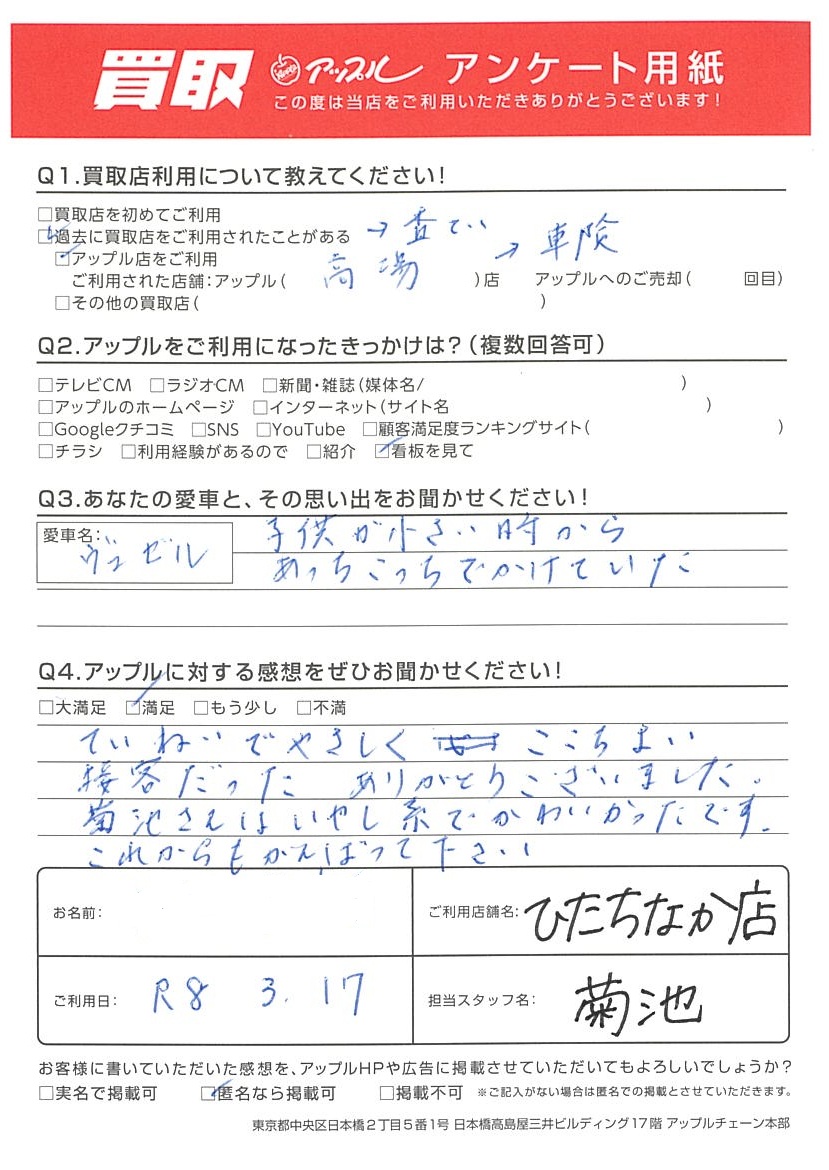 買取 アップル アンケート用紙
この度は当店をご利用いただきありがとうございます!
Q1.買取店利用について教えてください!
□買取店を初めてご利用
□過去に買取店をご利用されたことがある →査てい →車険
□アップル店をご利用
ご利用された店舗:アップル( 高場 )店 アップルへのご売却( 回目)
□その他の買取店( )
Q2.アップルをご利用になったきっかけは?(複数回答可)
□テレビCM □ラジオCM □新聞・雑誌(媒体名/ )
□アップルのホームページ □インターネット(サイト名 )
□Googleクチコミ □SNS □YouTube □顧客満足度ランキングサイト( )
□チラシ □利用経験があるので □紹介 □看板を見て
Q3.あなたの愛車と、その思い出をお聞かせください!
愛車名: ヴェゼル
子供が小さい時から
あっちこっちでかけていた
Q4.アップルに対する感想をぜひお聞かせください!
□大満足 □満足 □もう少し □不満
ていねいでやさしく ここちよい
接客だった ありがとうございました。
菊池さんはいやし系でかわいかったです。
これからもがんばって下さい
お名前:
ご利用店舗名: ひたちなか店
ご利用日: R8 3.17
担当スタッフ名: 菊池
お客様に書いていただいた感想を、アップルHPや広告に掲載させていただいてもよろしいでしょうか?
□実名で掲載可 □匿名なら掲載可 □掲載不可 ※ご記入がない場合は匿名での掲載とさせていただきます。
東京都中央区日本橋2丁目5番1号 日本橋高島屋三井ビルディング17階 アップルチェーン本部